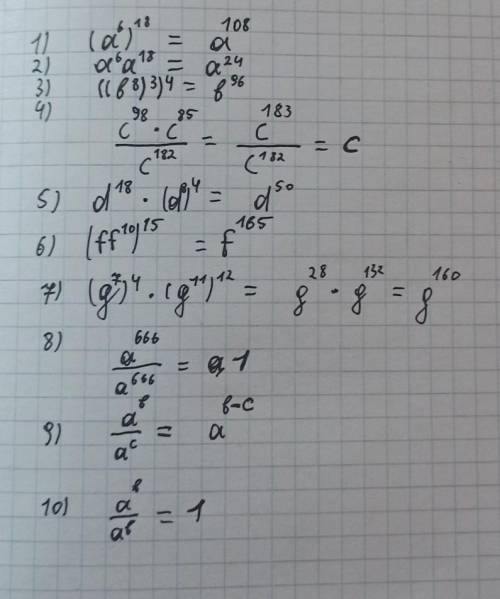 1) (a⁶)¹⁸ = a¹⁰⁸
2) a⁶a¹⁸ = a²⁴
3) ((b⁸)³)⁴ = b⁹⁶
4) (c⁹⁸ · c⁸⁵)/c¹⁸² = c¹⁸³/c¹⁸² = c
5) d¹⁸ · (d⁸)⁴ = d⁵⁰
6) (ff¹⁰)¹⁵ = f¹⁶⁵
7) (g⁷)⁴ · (g¹¹)¹² = g²⁸ · g¹³² = g¹⁶⁰
8) a⁶⁶⁶/a⁶⁶⁶ = 1
9) aᵇ/aᶜ = aᵇ⁻ᶜ
10) aᵇ/aᵇ = 1